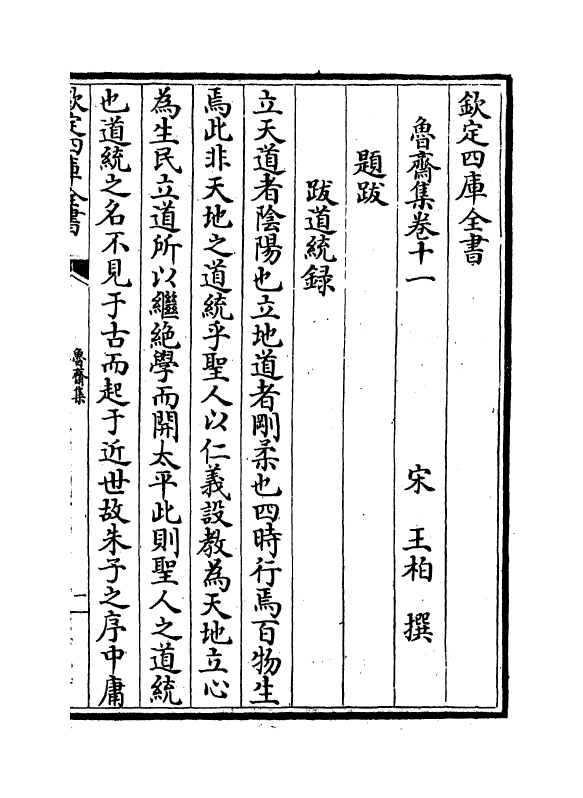 欽定四庫全書
魯齋集卷十一
宋 王柏 撰
題跋
跋道統録
立天道者陰陽也立地道者剛柔也四時行焉百物生
焉此非天地之道統乎聖人以仁義設教為天地立心
為生民立道所以繼絶學而開太平此則聖人之道統
也道統之名不見于古而起于近世故朱子之序中庸
欽定四庫全書
魯齋集
一